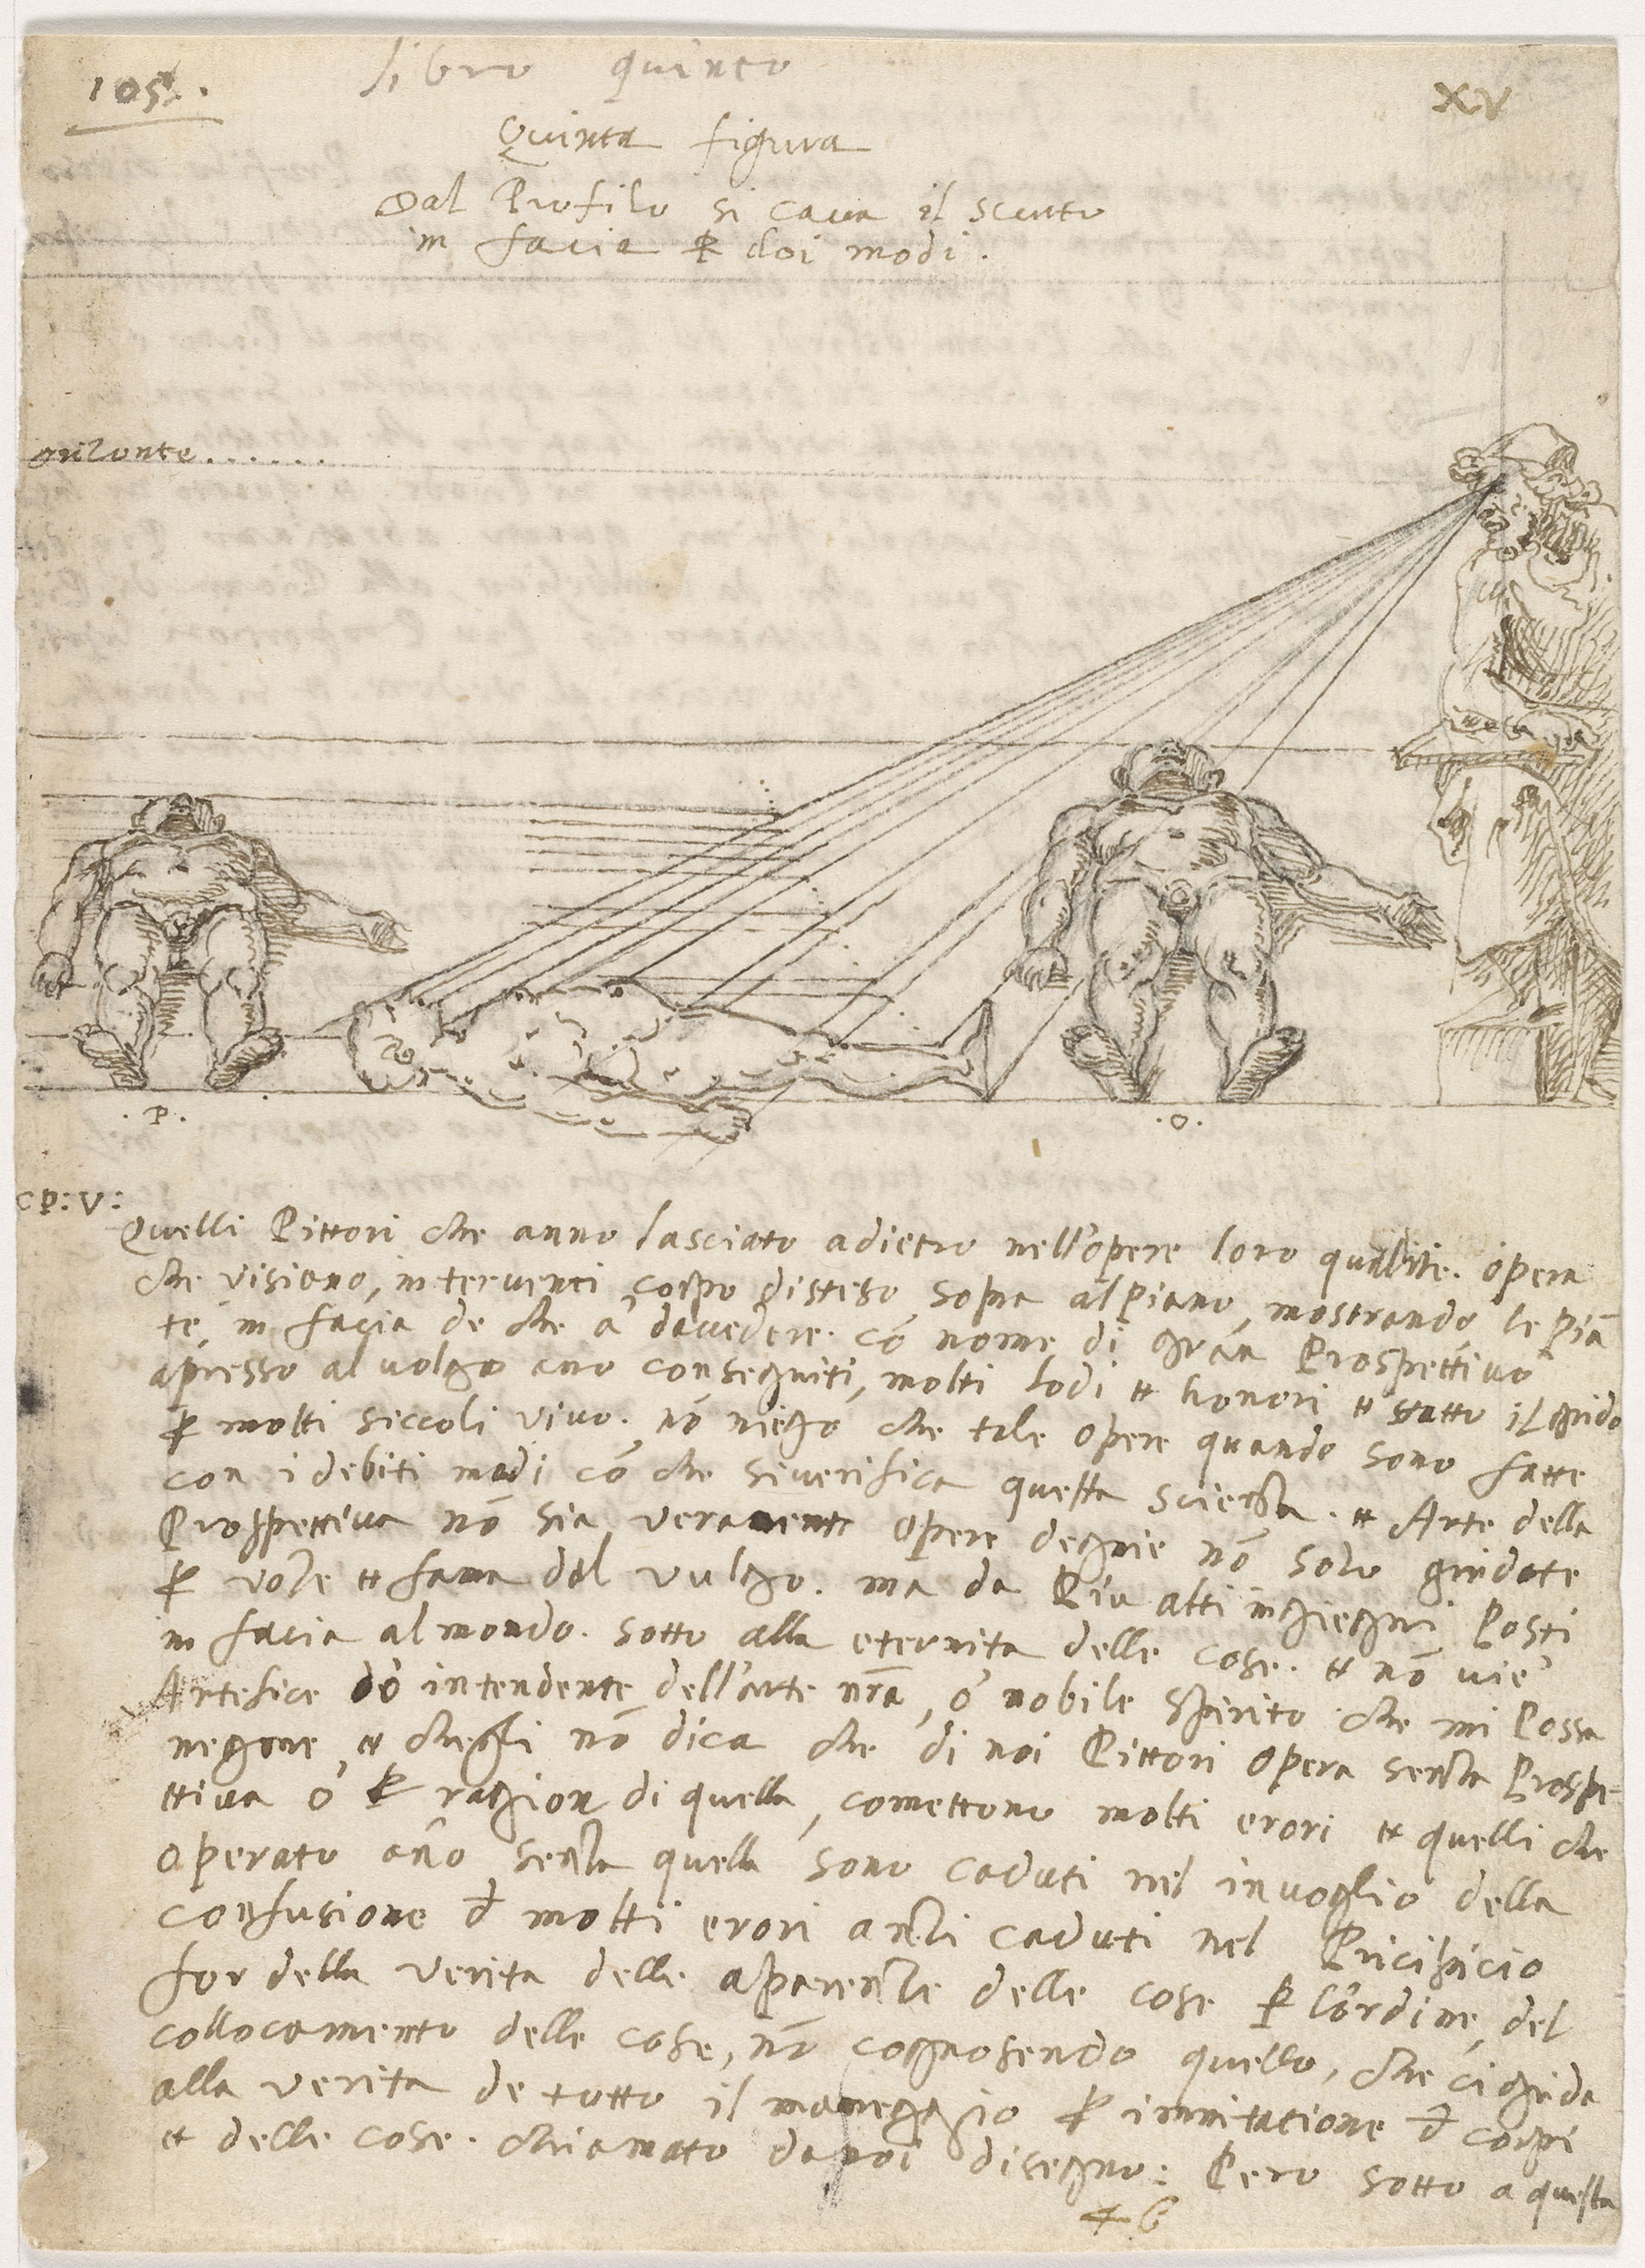 105.
libro quinto
XV
Quinta figura
Dal Profilo si caua il scurto
in facia ꝑ doi modi.
orizonte.......
.P.
.O.
CP: V:
Quelli Pittori che anno lasciato adietro nell'opere loro qualite. opera
che visiano, interuenti corpo disteso sopra al piano, mostrando le piã
te, in facia de che a davedere. cõ nome di gran Prospettiuo
apresso al uolgo ano conseguiti, molti lodi et honori et statto il grido
ꝑ molti siccoli vivo. nõ niego che tale opere quando sono fatte
con i debiti modi cõ che siverifica questa scienza. et Arte della
Prospettiua nõ sia veramente opere degnie nõ solo gridate
ꝑ voze et fama del vulgo. ma da Piu alti ingiegni Posti
in facia al mondo. sotto alla eternita delle cose. et nõ vie
Artefice dò intendente dell'arte nrã, ò nobile spirito che mi Possa
negare, et chegli nõ dica che di noi Pittori opera senza Prospe-
ttiua ò ꝑ ragion di quella, comettono molti erori et quelli che
operato ano senza quella sono caduti nel invoglio della
confusione đ molti erori anzi caduti nel Pricipicio
for della verita delle aparenze delle cose ꝑ l'ordine, del
collocamento delle cose, nõ cognosendo quello, che ci guida
alla verita de tutto il maneggio ꝑ immitatione đ corpi
et delle cose. chiamato da noi disegno: Pero sotto a questa
46